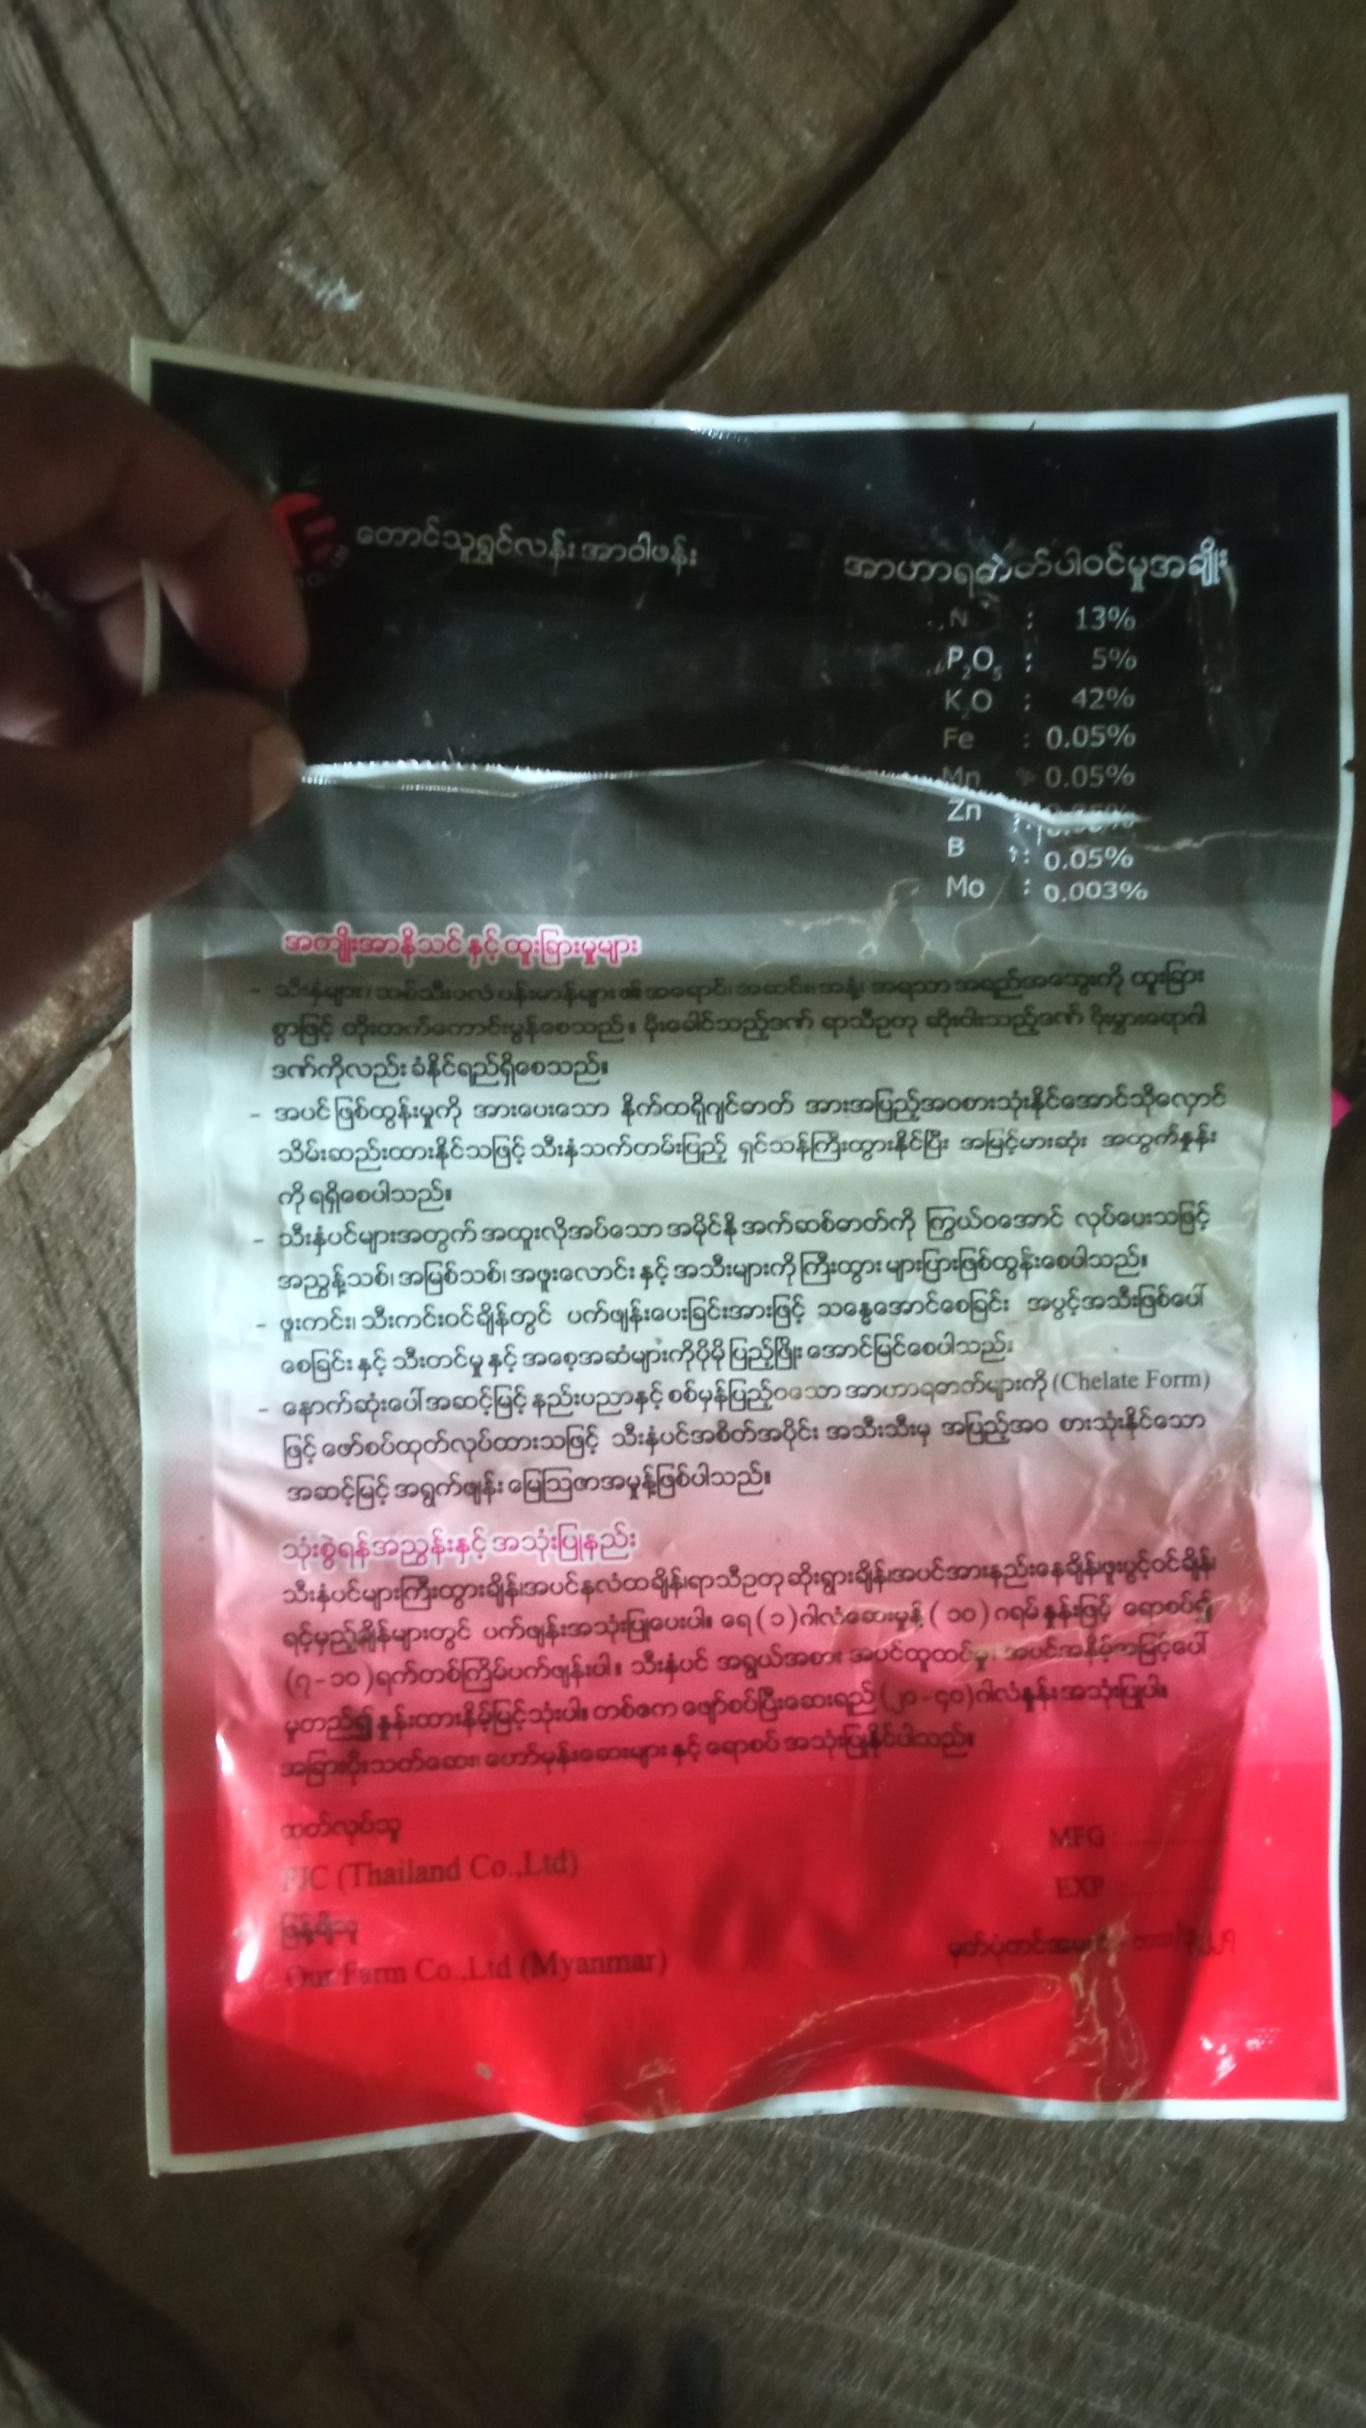 တောင်သူ့ရွှင်လန်း အာဝါဖန်း
အာဟာရဓာတ်ပါဝင်မှုအချိုး
N : 13%
P₂O₅ : 5%
K₂O : 42%
Fe : 0.05%
Mn : 0.05%
Zn :
B : 0.05%
Mo : 0.003%
အကျိုးအာနိသင် နှင့် ထူးခြားမှုများ
- သီးနှံများ၊ သစ်သီးဝလံ ပန်းမာန်များ ၏ အရောင်၊ အဆင်း၊ အနံ့၊ အရသာ အရည်အသွေးကို ထူးခြား
စွာဖြင့် တိုးတက်ကောင်းမွန်စေသည်။ မိုးခေါင်သည့်ဒဏ် ရာသီဥတု ဆိုးဝါးသည့်ဒဏ် ပိုးမွှားရောဂါ
ဒဏ်ကိုလည်း ခံနိုင်ရည်ရှိစေသည်။
- အပင်ဖြစ်ထွန်းမှုကို အားပေးသော နိုက်ထရိုဂျင်ဓာတ် အားအပြည့်အဝစားသုံးနိုင်အောင်သိုလှောင်
သိမ်းဆည်းထားနိုင်သဖြင့် သီးနှံသက်တမ်းပြည့် ရှင်သန်ကြီးထွားနိုင်ပြီး အမြင့်မားဆုံး အထွက်နှုန်း
ကို ရရှိစေပါသည်။
- သီးနှံပင်များအတွက် အထူးလိုအပ်သော အမိုင်နို အက်ဆစ်ဓာတ်ကို ကြွယ်ဝအောင် လုပ်ပေးသဖြင့်
အညွန့်သစ်၊ အမြစ်သစ်၊ အဖူးလောင်း နှင့် အသီးများကို ကြီးထွား များပြားဖြစ်ထွန်းစေပါသည်။
- ဖူးကင်း၊ သီးကင်းဝင်ချိန်တွင် ပက်ဖျန်းပေးခြင်းအားဖြင့် သန္ဓေအောင်စေခြင်း အပွင့်အသီးဖြစ်ပေါ်
စေခြင်း နှင့် သီးတင်မှု နှင့် အစေ့အဆံများကိုပိုမို ပြည့်ဖြိုး အောင်မြင်စေပါသည်။
- နောက်ဆုံးပေါ် အဆင့်မြင့် နည်းပညာနှင့် စစ်မှန်ပြည့်ဝသော အာဟာရဓာတ်များကို (Chelate Form)
ဖြင့် ဖော်စပ်ထုတ်လုပ်ထားသဖြင့် သီးနှံပင်အစိတ်အပိုင်း အသီးသီးမှ အပြည့်အဝ စားသုံးနိုင်သော
အဆင့်မြင့် အရွက်ဖျန်း မြေဩဇာအမှုန့်ဖြစ်ပါသည်။
သုံးစွဲရန်အညွှန်းနှင့် အသုံးပြုနည်း
သီးနှံပင်များကြီးထွားချိန်၊အပင်နလံထချိန်၊ရာသီဥတု ဆိုးရွားချိန်၊အပင်အားနည်းနေချိန်၊ဖူးပွင့်ဝင်ချိန်၊
ရင့်မှည့်ချိန်များတွင် ပက်ဖျန်းအသုံးပြုပေးပါ။ ရေ (၁) ဂါလံဆေးမှုန့် (၁၀) ဂရမ် နှုန်းဖြင့် ရောစပ်၍
(၇-၁၀)ရက်တစ်ကြိမ်ပက်ဖျန်းပါ။ သီးနှံပင် အရွယ်အစား၊ အပင်ထူထပ်မှု၊ အပင်အနိမ့်အမြင့်ပေါ်
မူတည်၍ နှုန်းထားနိမ့်မြင့်သုံးပါ။ တစ်ဧက ဖျော်စပ်ပြီးဆေးရည် (၂၀-၄၀)ဂါလံနှုန်း အသုံးပြုပါ။
အခြားပိုးသတ်ဆေး၊ ဟော်မုန်းဆေးများ နှင့် ရောစပ် အသုံးပြုနိုင်ပါသည်။
ထုတ်လုပ်သူ
FJC (Thailand Co.,Ltd)
ဖြန့်ချိသူ
Our Farm Co.,Ltd (Myanmar)
MFG :
EXP :
မှတ်ပုံတင်အမှတ်